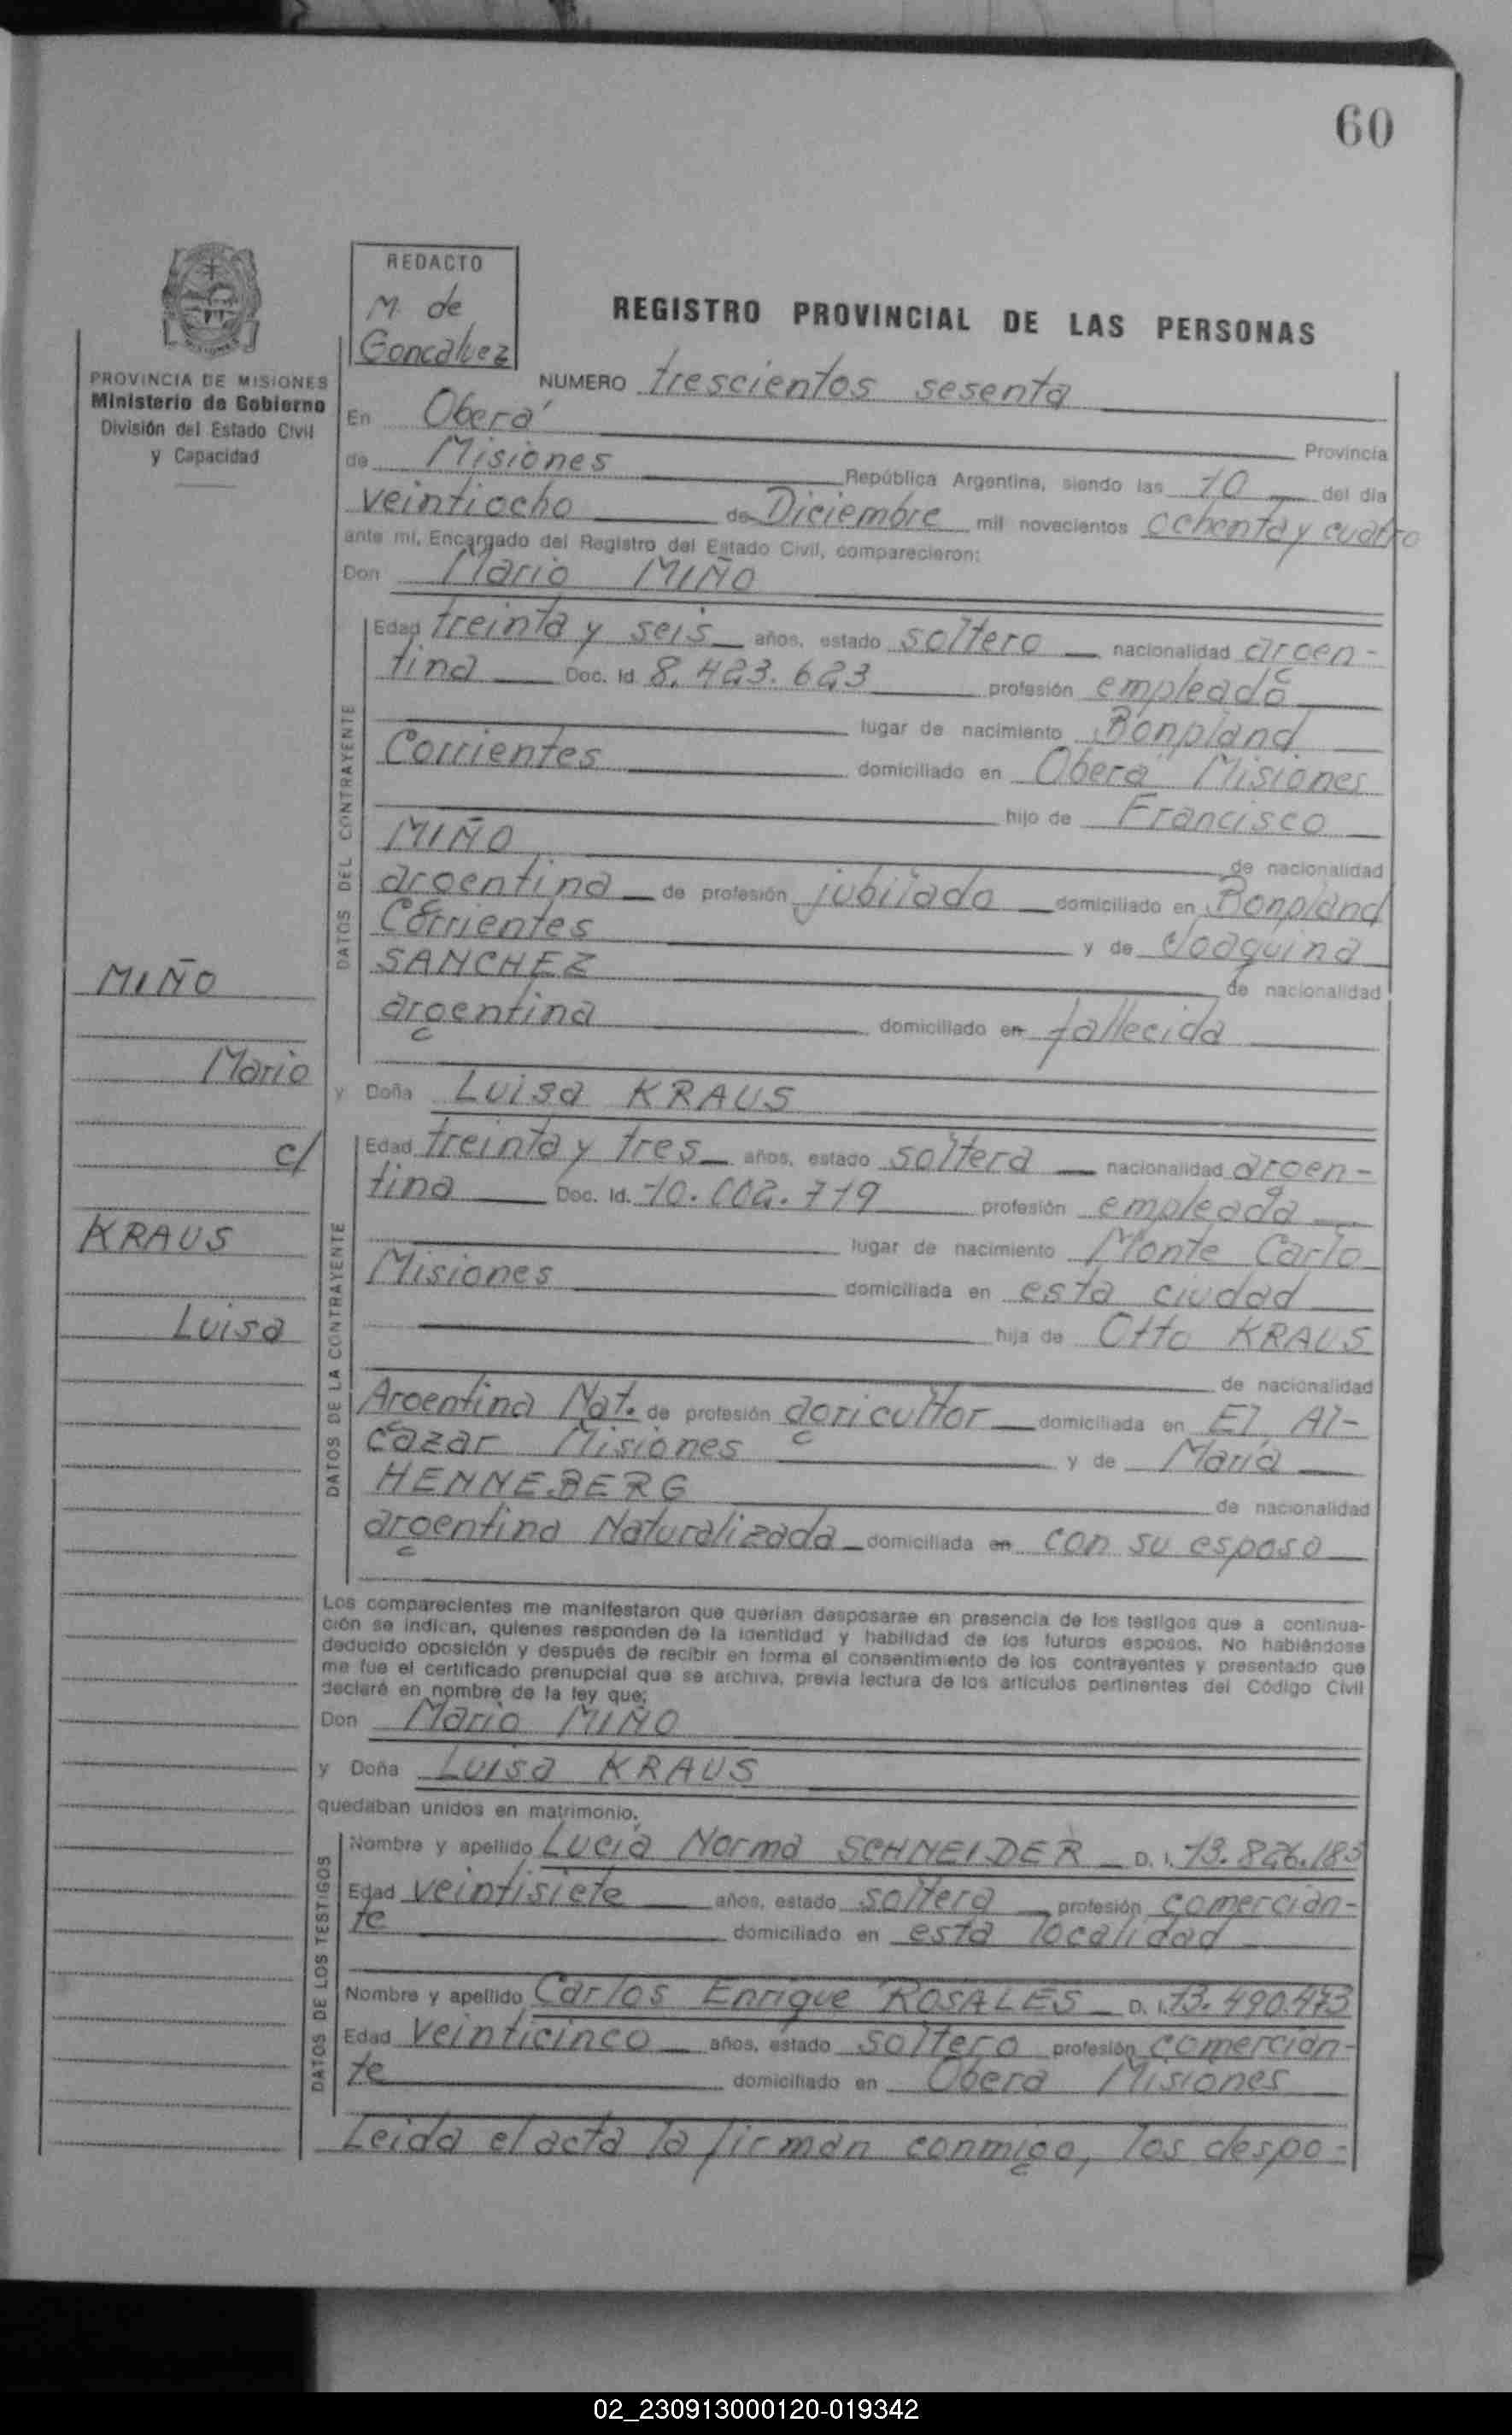 60
REDACTO
M. de
Goncalvez
REGISTRO PROVINCIAL DE LAS PERSONAS
PROVINCIA DE MISIONES
Ministerio de Gobierno
División del Estado Civil
y Capacidad
NUMERO trescientos sesenta
En Oberá Provincia
de Misiones República Argentina, siendo las 10 del día
veintiocho de Diciembre mil novecientos ochenta y cuatro
ante mí, Encargado del Registro del Estado Civil, comparecieron:
Don Mario MIÑO
DATOS DEL CONTRAYENTE
Edad treinta y seis años, estado soltero nacionalidad argen-
tina Doc. Id. 8.423.623 profesión empleado
lugar de nacimiento Bonpland
Corrientes domiciliado en Oberá Misiones
hijo de Francisco
MIÑO de nacionalidad
argentina de profesión jubilado domiciliado en Bonpland
Corrientes y de Joaquina
SANCHEZ de nacionalidad
argentina domiciliado en fallecida
y Doña Luisa KRAUS
DATOS DE LA CONTRAYENTE
Edad treinta y tres años, estado soltera nacionalidad argen-
tina Doc. Id. 10.002.719 profesión empleada
lugar de nacimiento Monte Carlo
Misiones domiciliada en esta ciudad
hija de Otto KRAUS
de nacionalidad
Argentina Nat. de profesión agricultor domiciliada en El Al-
cazar Misiones y de María
HENNEBERG de nacionalidad
argentina Naturalizada domiciliada en con su esposo
Los comparecientes me manifestaron que querían desposarse en presencia de los testigos que a continua-
ción se indican, quienes responden de la identidad y habilidad de los futuros esposos. No habiéndose
deducido oposición y después de recibir en forma el consentimiento de los contrayentes y presentado que
me fue el certificado prenupcial que se archiva, previa lectura de los artículos pertinentes del Código Civil
declaré en nombre de la ley que;
Don Mario MIÑO
y Doña Luisa KRAUS
quedaban unidos en matrimonio.
DATOS DE LOS TESTIGOS
Nombre y apellido Lucia Norma SCHNEIDER D. I. 13.826.183
Edad veintisiete años, estado soltera profesión comercian-
te domiciliado en esta localidad
Nombre y apellido Carlos Enrique ROSALES D. I. 13.490.473
Edad veinticinco años, estado soltero profesión comercian-
te domiciliado en Oberá Misiones
Leida el acta la firman conmigo, los despo-
MIÑO
Mario
c/
KRAUS
Luisa
02_230913000120-019342